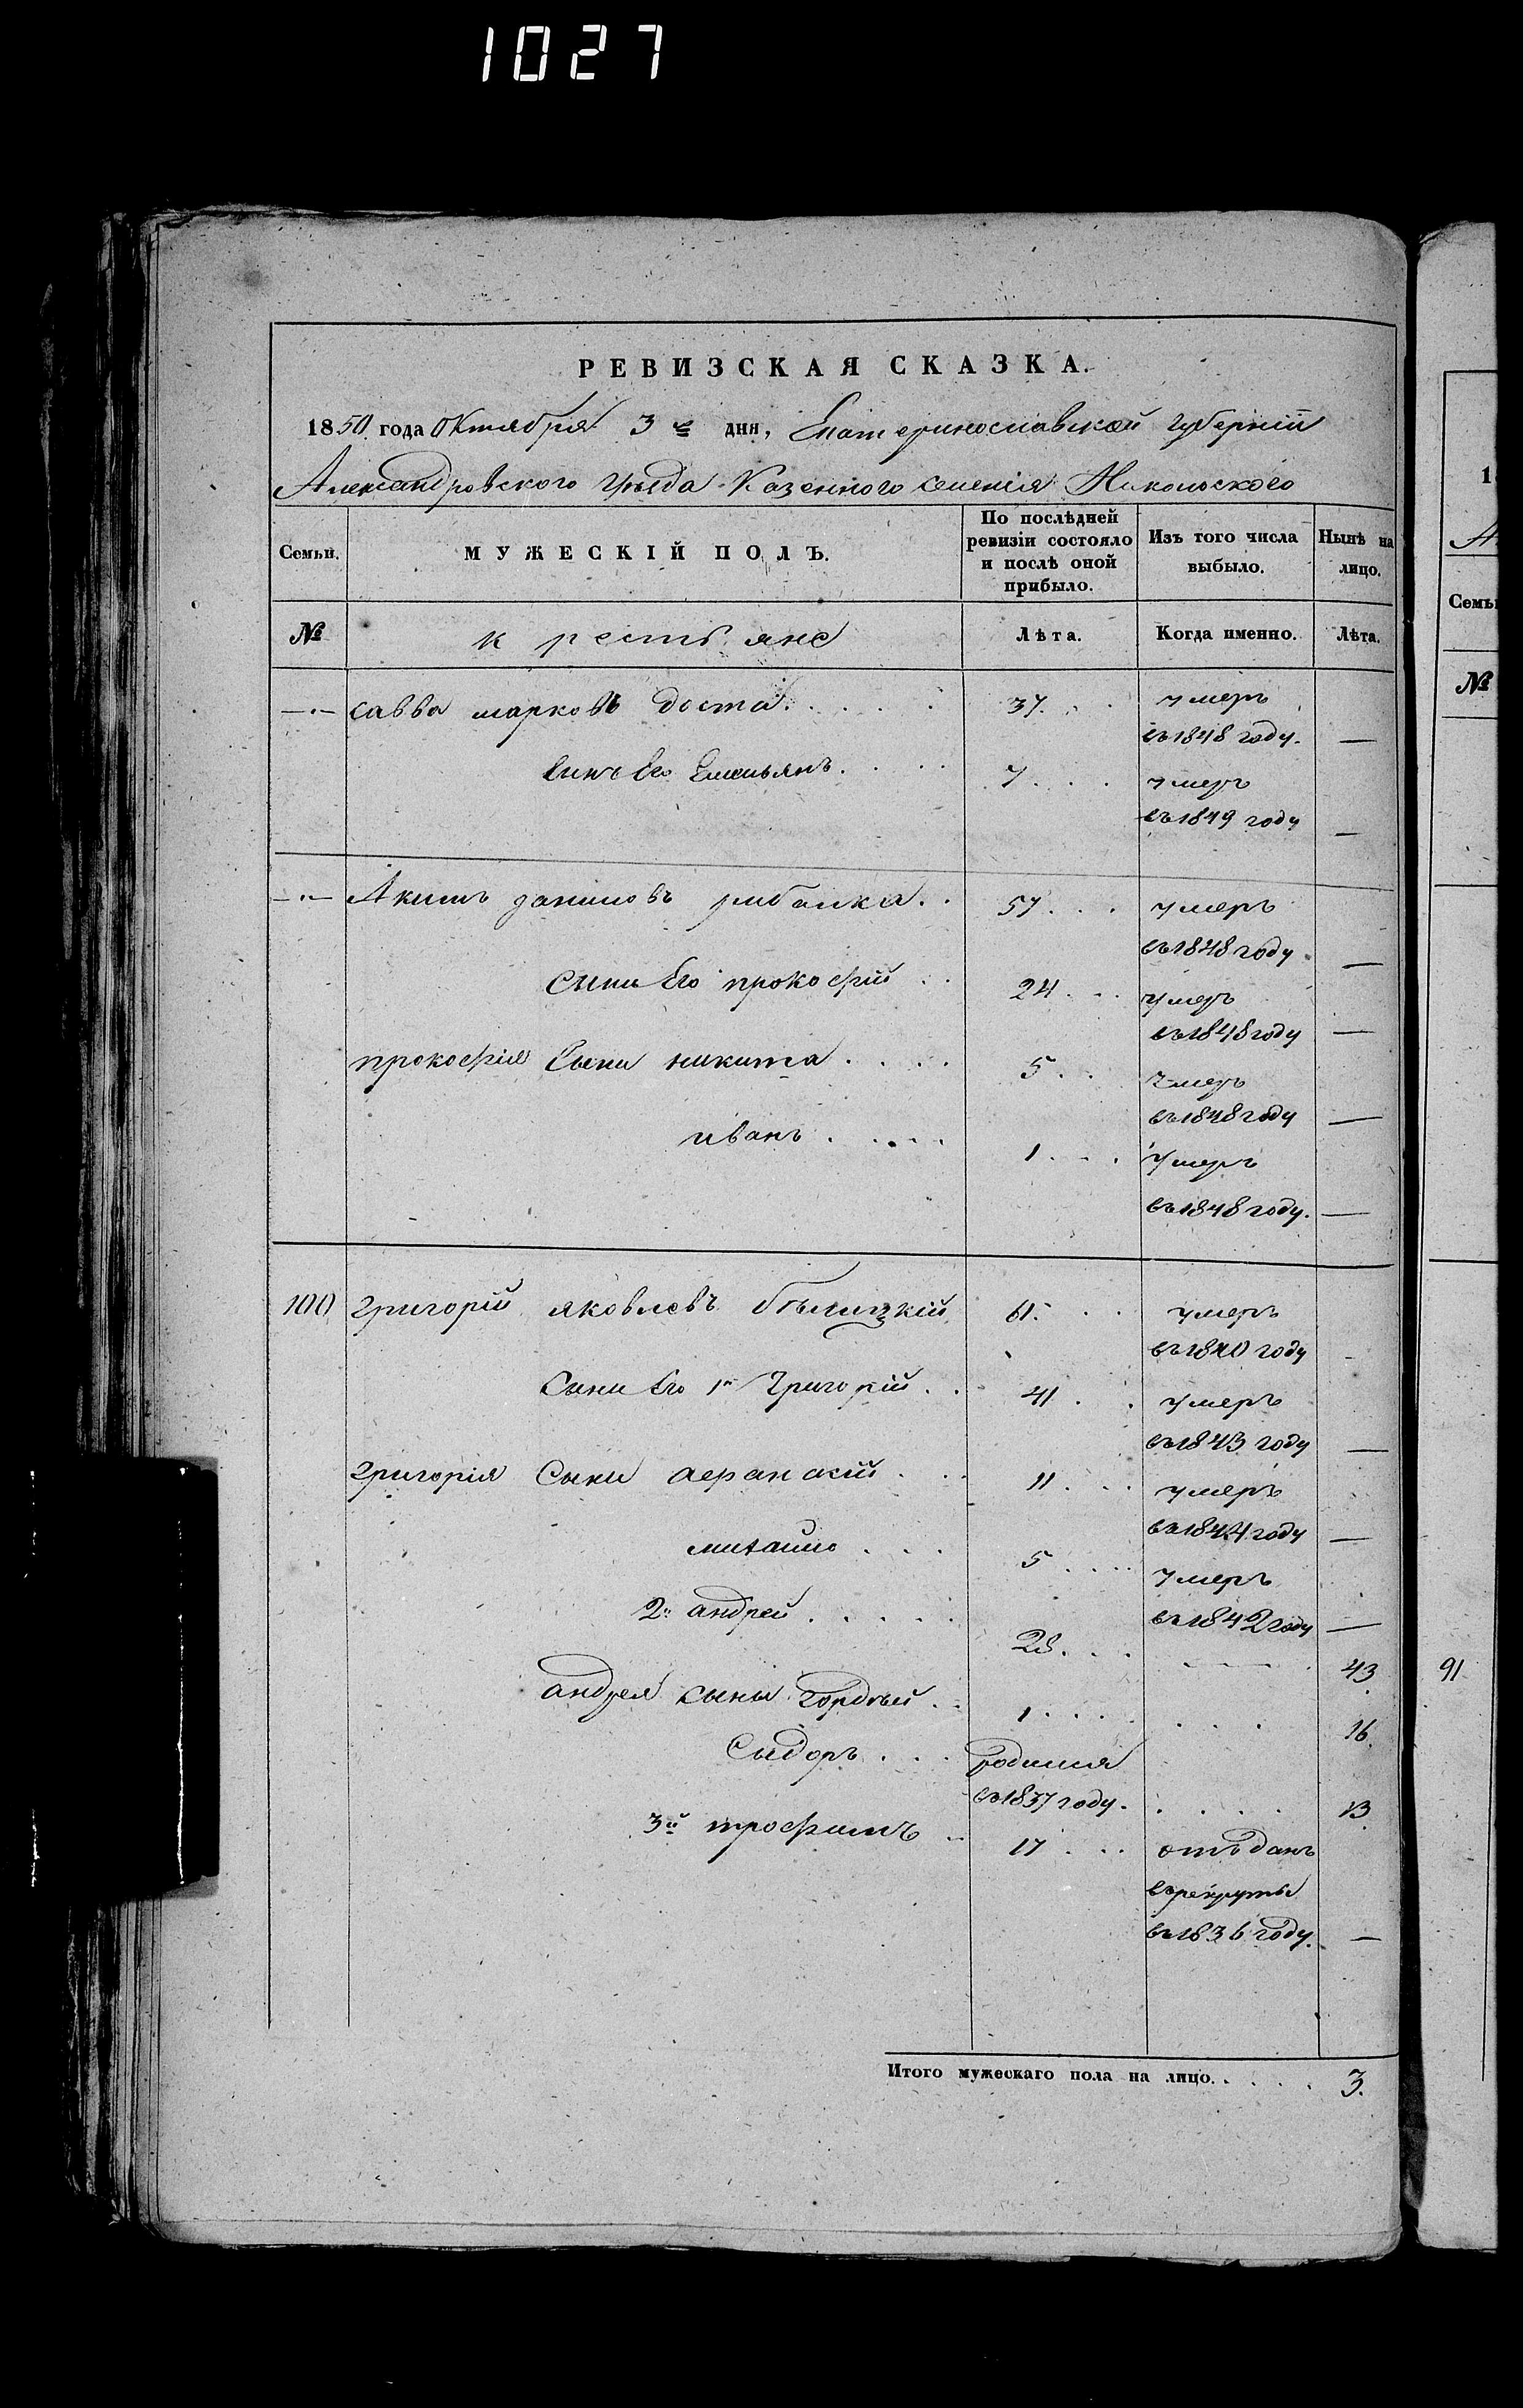 1027
РЕВИЗСКАЯ СКАЗКА.
1850 года Октября 3го дня, Екатеринославской губернии
Александровского уезда Казенного селения Никольского
Семьи.
МУЖЕСКІЙ ПОЛЪ.
По послѣдней ревизіи состояло и послѣ оной прибыло.
Изъ того числа выбыло.
Нынѣ на лицо.
№
крестьяне
Лѣта.
Когда именно.
Лѣта.
—"— савва марковъ доста . . . . . 37 . . . умеръ
въ 1848 году. —
Синъ его Емельянъ . . . . 7 . . . умеръ
въ 1849 году —
—"— Акимъ даниловъ рибалка . . 57 . . . умеръ
въ 1848 году —
Сыны Его прокофій . . 24 . . . умеръ
въ 1848 году —
прокофія Сыны никита . . . . 5 . . умеръ
въ 1848 году —
иванъ . . . . . 1 . . . умеръ
въ 1848 году. —
100 григорій яковлевъ бѣлицкій 61 . . . умеръ
въ 1840 году -
Сыны Его 1й Григорій . . 41 . . умеръ
въ 1843 году —
григорія Сыны афанасій . . . 11 . . . умеръ
въ 1844 году —
михайло . . . 5 . . . . умеръ
въ 1842 году —
2й андрей . . . . . 28 . . . 43
андрея сыны Гордѣй . . 1 . . . . . . . 16.
Сидоръ . . . родился
въ 1837 году . . . . . 13.
3й трофимъ .. 17 . . . отъданъ
въ рекруты
въ 1836 году. —
Итого мужескаго пола на лицо. . . . . 3.
1
А
Семьи
№
91